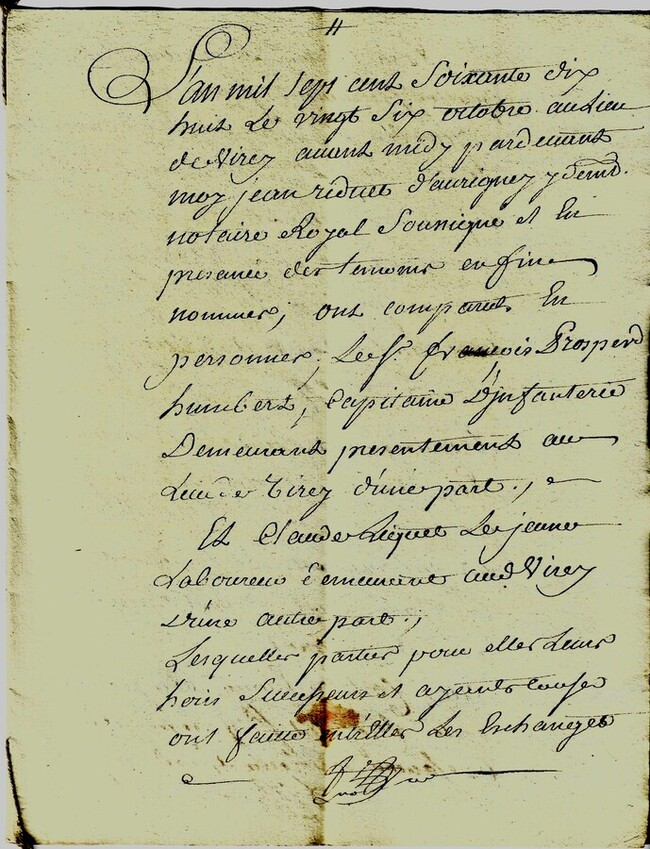 L'an mil sept cent Soixante dix
huit Le vingt Six octobre au Lieu
de Virey avant midy pardevant
moy jean d'aurigney y demt.
notaire Royal Soussigné et En
presence des temoins en fin
nommés, ont comparu En
personnes, Le Sr. françois Prosper
humbert, Capitaine D'jnfanterie
Demeurant presentement au
Lieu de Virey d'une part., 
Et Claude Le jeune
Laboureur demeurant aud Virey
D'une autre part.,
Lesquelles parties pour elles Leurs
hoirs Successeurs et ayants Cause
ont faits entr'Elles Les Eschanges